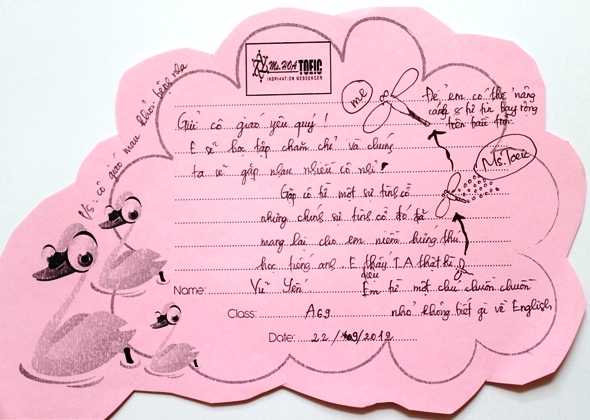 Ms. HOA TOEIC
INSPIRATION MESSENGER
Gửi cô giáo yêu quý!
E sẽ học tập chăm chỉ và chúng
ta sẽ gặp nhau nhiều cô nhỉ
Gặp cô là một sự tình cờ
nhưng chính sự tình cờ đó đã
mang lại cho em niềm hứng thú
học tiếng anh. E thấy T.A thật kì
diệu
Name: Vũ Yến
Class: A69
Date: 22/9/2012
Để em có thể nâng
cánh & tự tin bay rộng
trên bầu trời
me
Ms. Toeic
Em là một chú chuồn chuồn
nhỏ không biết gì về English
cô giáo mau khỏi bệnh nha